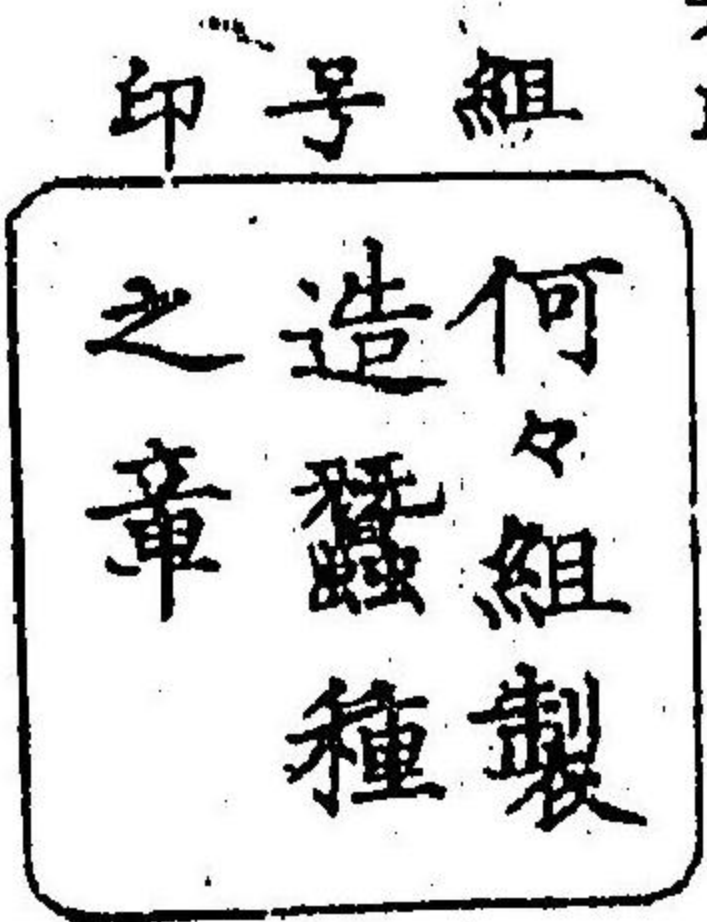 組号印
何々組製
造蠶種
之章